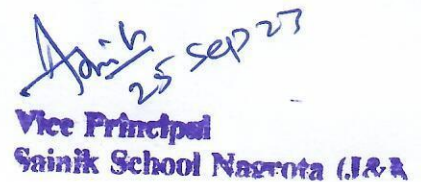 25 Sep 23
Vice Principal
Sainik School Nagrota (J&K